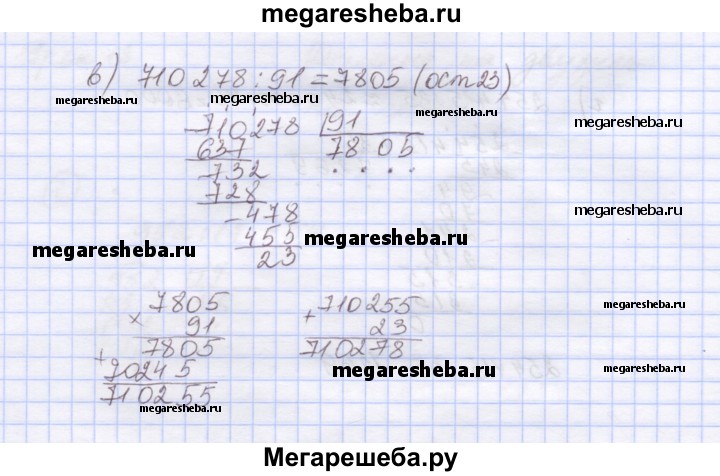 megaresheba.ru
в) 710 278 : 91 = 7805 (ост 23)
megaresheba.ru
megaresheba.ru
megaresheba.ru
- 710278 | 91
637 78 05
megaresheba.ru
- 732 . . . .
728
- 478
megaresheba.ru
455
megaresheba.ru
megaresheba.ru
23
7805
× 91
+ 7805
70245
710255
710255
+ 23
710278
megaresheba.ru
megaresheba.ru
megaresheba.ru
Мегарешеба.ру